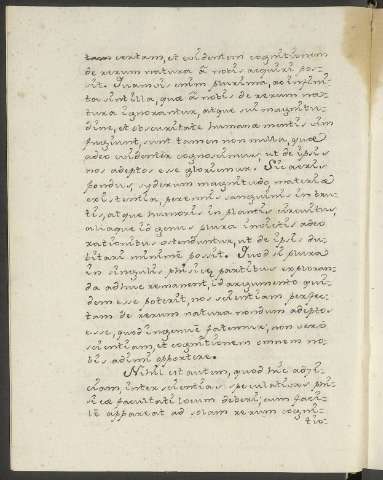 tam certam, et evidentem cognitionem
de rerum natura à nobis acquiri pos-
sit. Quamvis enim plurima, ac infini-
ta sint illa, quæ à nobis de rerum na-
tura ignorantur, atque sui magnitu-
dine, et obscuritate humanæ mentis vim
fugiunt, sunt tamen non nulla, quæ
adeo evidenter cognoscimus, ut de ipsis
nos adeptos esse gloriemur. Sic aeris
pondus, syderum magnitudo, materiæ
existentia, perennis sanguinis in bru-
tis, atque humoris in plantis circuitus,
aliaque id genus plura invictis adeo
rationibus ostenduntur, ut de ipsis du-
bitari minime possit. Quod si plura
in singulis phisicæ partibus exploran-
da adhuc remanent, id argumento qui-
dem esse poterit, nos scientiam perfec-
tam de rerum natura nondum adeptos
esse, quod ingenue fatemur, non vero
scientiam, et cognitionem omnem no-
bis adimi opportere.
Nihil est autem, quod hic adji-
ciam, inter scientias speculativas phi-
sicæ facultati locum deberi, cum faci-
lè appareat ad solam rerum cogni-
tio-